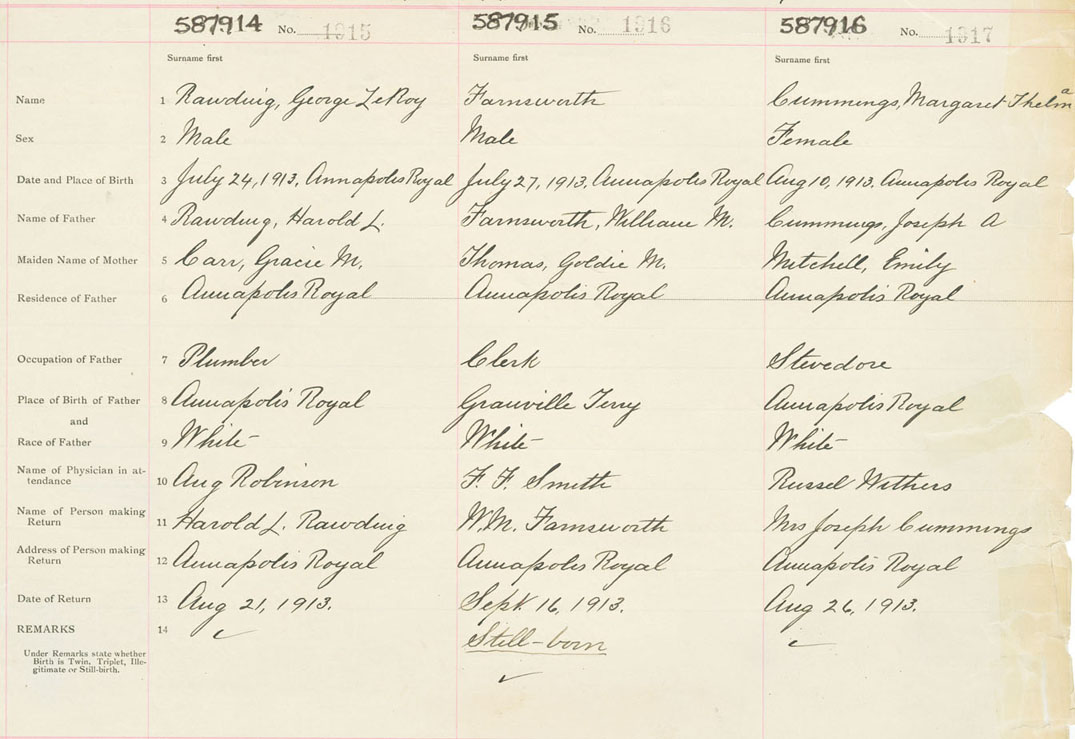 587914 No. 1915 587915 No. 1916 587916 No. 1917
Surname first Surname first Surname first
Name 1 Rawding, George LeRoy Farnsworth Cummings, Margaret Thelma
Sex 2 Male Male Female
Date and Place of Birth 3 July 24, 1913, Annapolis Royal July 27, 1913, Annapolis Royal Aug 10, 1913, Annapolis Royal
Name of Father 4 Rawding, Harold L. Farnsworth, William M. Cummings, Joseph A
Maiden Name of Mother 5 Carr, Gracie M. Thomas, Goldie M. Mitchell, Emily
Residence of Father 6 Annapolis Royal Annapolis Royal Annapolis Royal
Occupation of Father 7 Plumber Clerk Stevedore
Place of Birth of Father 8 Annapolis Royal Granville Ferry Annapolis Royal
and
Race of Father 9 White White White
Name of Physician in at-
tendance 10 Aug Robinson F. F. Smith Russel Withers
Name of Person making
Return 11 Harold L. Rawding W. M. Farnsworth Mrs Joseph Cummings
Address of Person making
Return 12 Annapolis Royal Annapolis Royal Annapolis Royal
Date of Return 13 Aug 21, 1913. Sept. 16, 1913. Aug 26, 1913.
REMARKS 14 ✓ Still-born ✓
Under Remarks state whether
Birth is Twin, Triplet, Ille-
gitimate or Still-birth. ✓